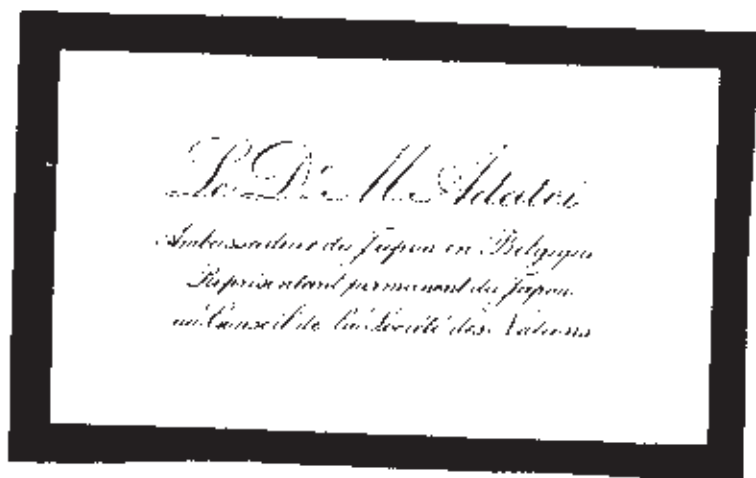 Le Dr. M. Adatci
Ambassadeur du Japon en Belgique
Représentant permanent du Japon
au Conseil de la Société des Nations